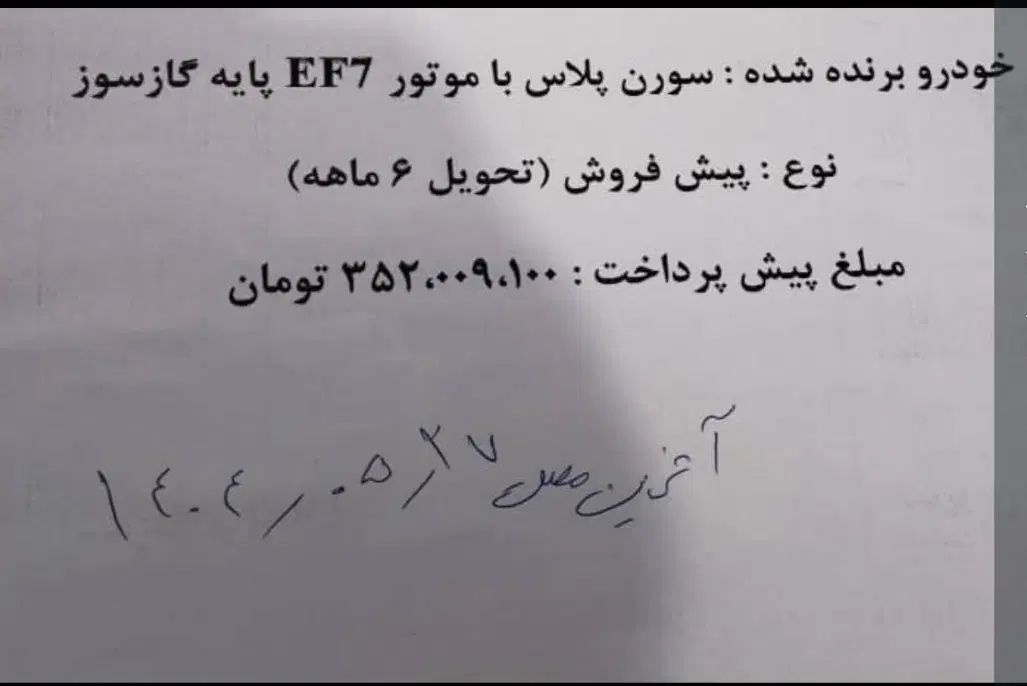 خودرو برنده شده : سورن پلاس با موتور EF7 پایه گازسوز
نوع : پیش فروش (تحویل ۶ ماهه)
مبلغ پیش پرداخت : ۳۵۲،۰۰۹،۱۰۰ تومان
آخرین مهلت ۱۴۰۴/۰۵/۲۷